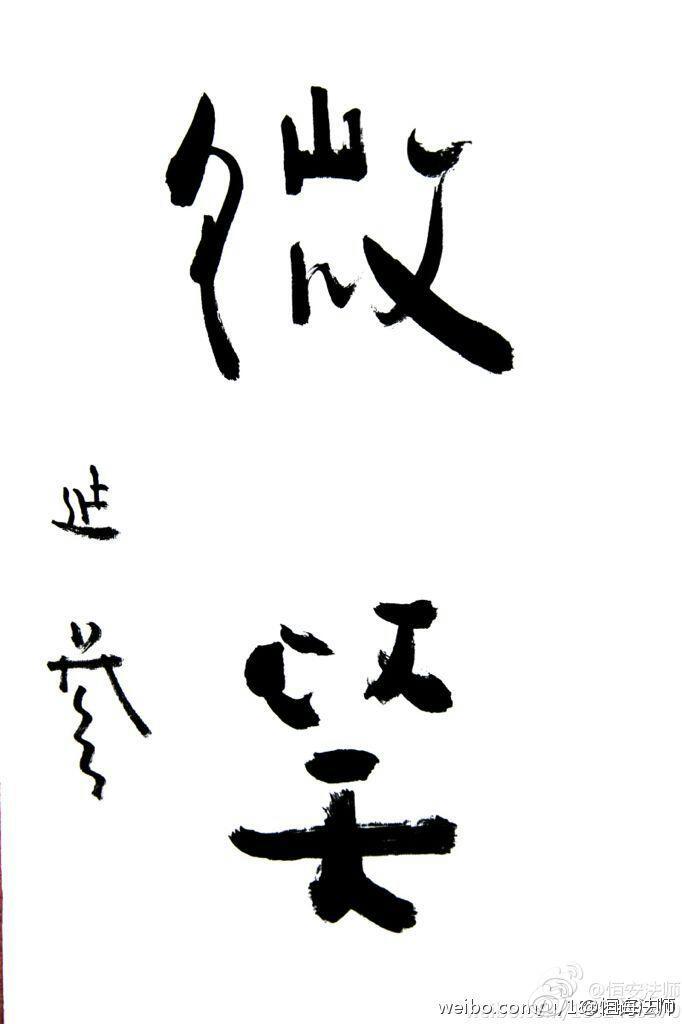 微笑
延参
@恒安法师
weibo.com/u/1